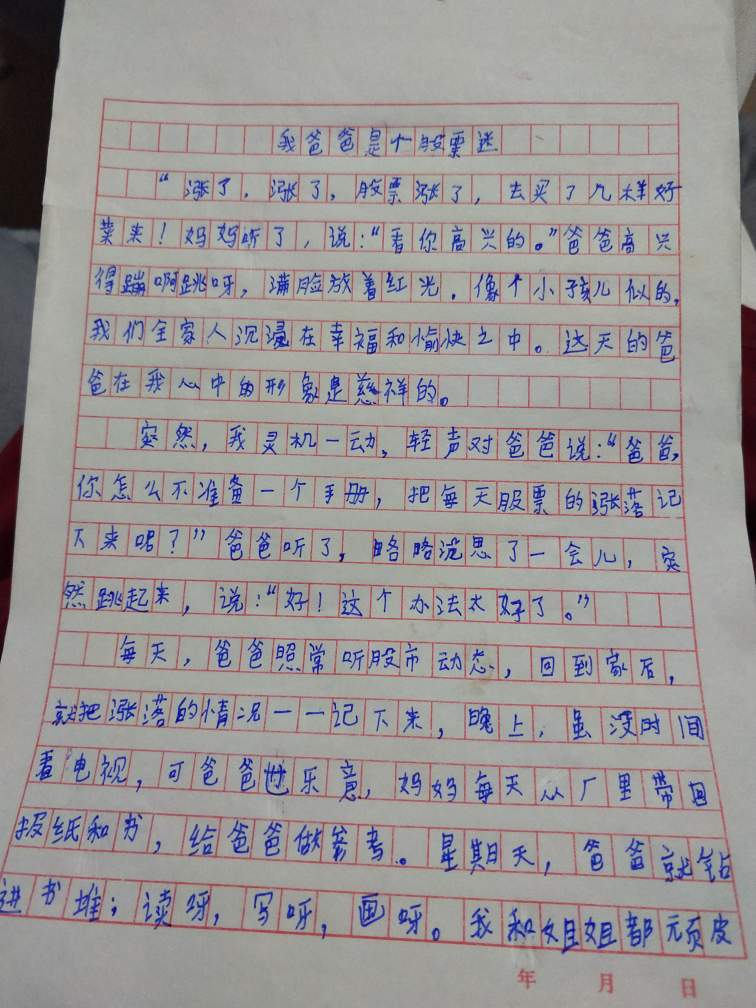 我爸爸是个股票迷
“涨了，涨了，股票涨了，去买了几样好
菜来！妈妈听了，说：“看你高兴的。”爸爸高兴
得蹦啊跳呀，满脸放着红光，像个小孩儿似的，
我们全家人沉浸在幸福和愉快之中。这天的爸
爸在我心中的形象是慈祥的。
突然，我灵机一动，轻声对爸爸说：“爸爸，
你怎么不准备一个手册，把每天股票的涨落记
下来呢？”爸爸听了，略略沉思了一会儿，突
然跳起来，说：“好！这个办法太好了。”
每天，爸爸照常听股市动态，回到家后，
就把涨落的情况一一记下来，晚上，虽没时间
看电视，可爸爸也乐意，妈妈每天从厂里带回
报纸和书，给爸爸做参考。星期天，爸爸就钻
进书堆；读呀，写呀，画呀。我和姐姐都顽皮
年 月 日